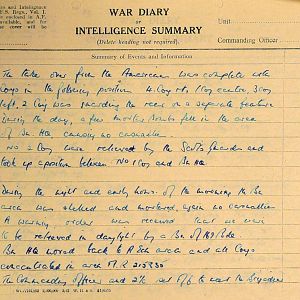 WAR DIARY
or
INTELLIGENCE SUMMARY
(Delete heading not required).
Unit
Commanding Officer
and Intelligence
F.S. Regs., Vol. I.
enclosed in A.F.
available, and for
the cover will be
Summary of Events and Information
The take over from the Americans was complete with
Coys in the following position 4 Coy rt. 1 Coy centre, 3 Coy
left, 2 Coy was guarding the rear on a separate feature
During the day, a few mortar bombs fell in the area
of Bn HQ causing no casualties.
No 2 Coy were relieved by the Scots Guards and
took up a position between No 1 Coy and Bn HQ
During the night and early hours of the morning the Bn
area was shelled and mortared, again no casualties
A warning order was received that we were
to be relieved in daylight by a Bn of Bde
Bn HQ moved back to A Ech area and all Coys
concentrated in area M.R.
The Commanding Officer and to meet the Brigadier